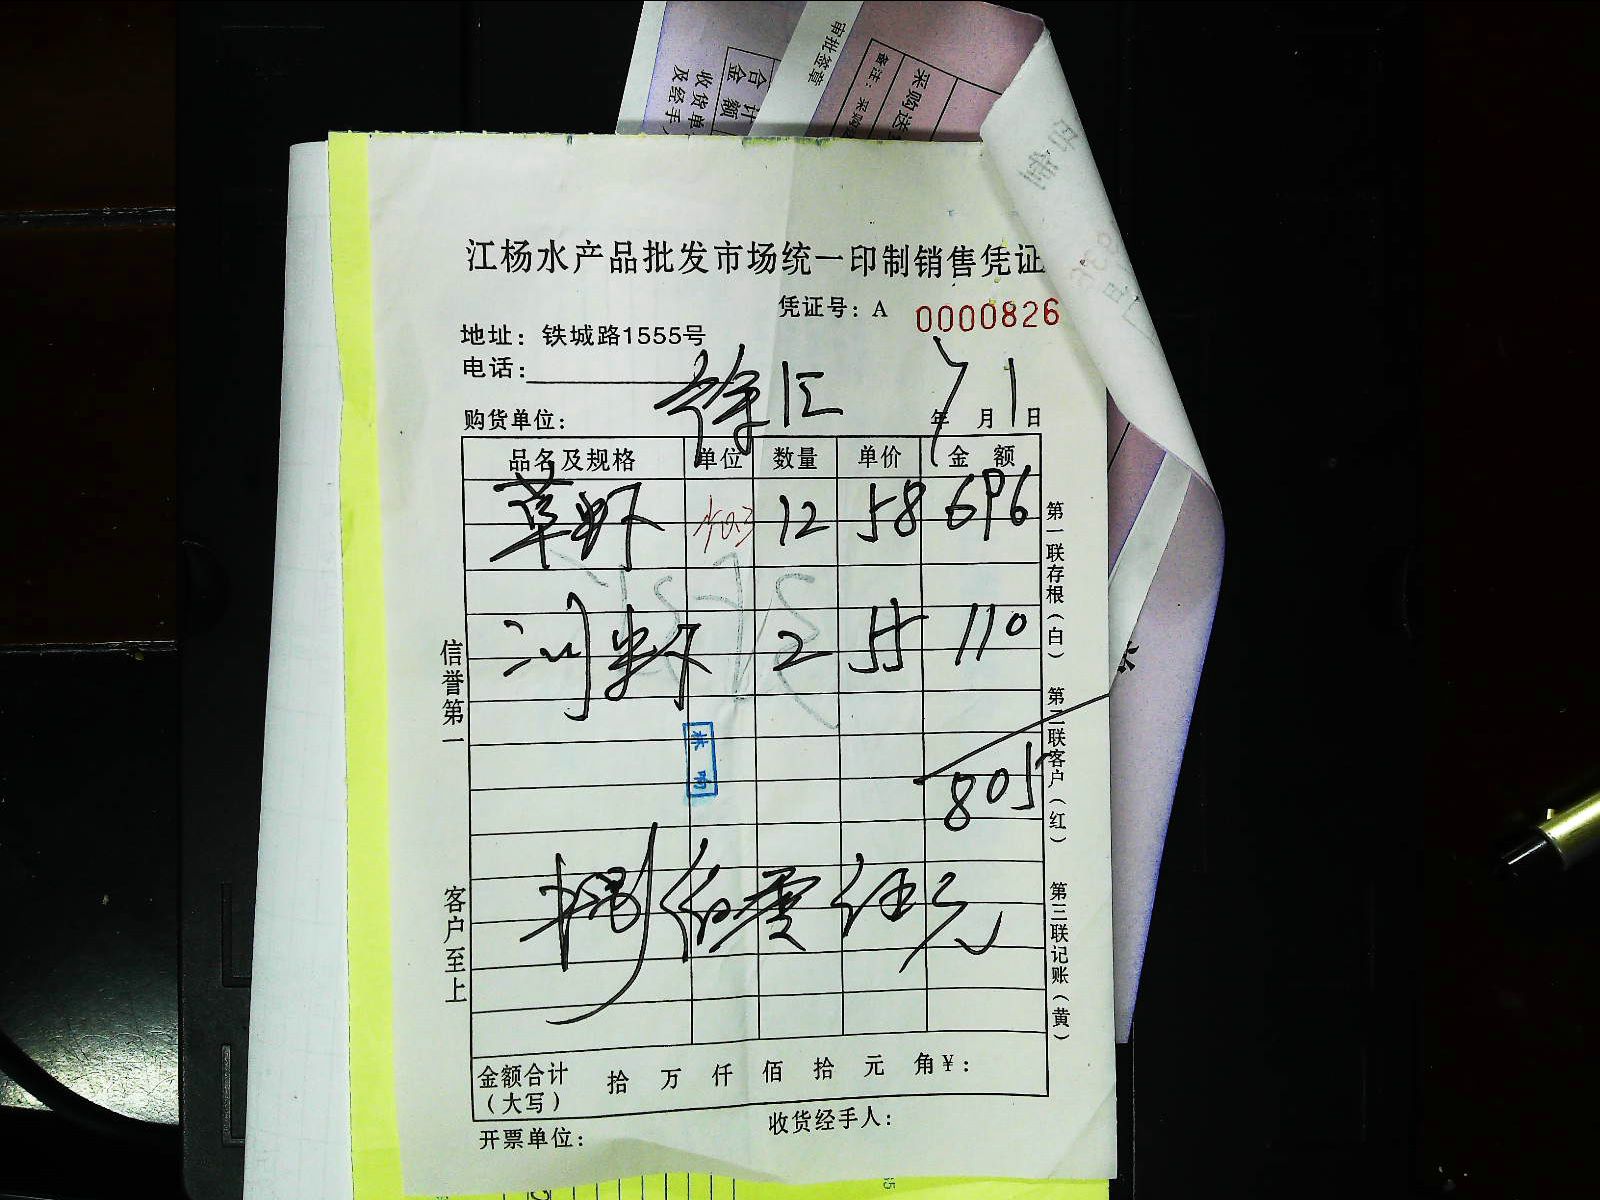 审批签章
备注：采购
采购送
合计
金额
收货单
及经手
印制
江杨水产品批发市场统一印制销售凭证
凭证号：A 0000826
地址：铁城路1555号
电话：
徐汇
购货单位： 年 7 月 1 日
品名及规格 单位 数量 单价 金额
草虾 12 58 696
河虾 2 55 110
805
捌佰零伍元
金额合计（大写） 拾 万 仟 佰 拾 元 角 ￥：
开票单位： 收货经手人：
信誉第一
客户至上
第一联存根（白） 第二联客户（红） 第三联记账（黄）